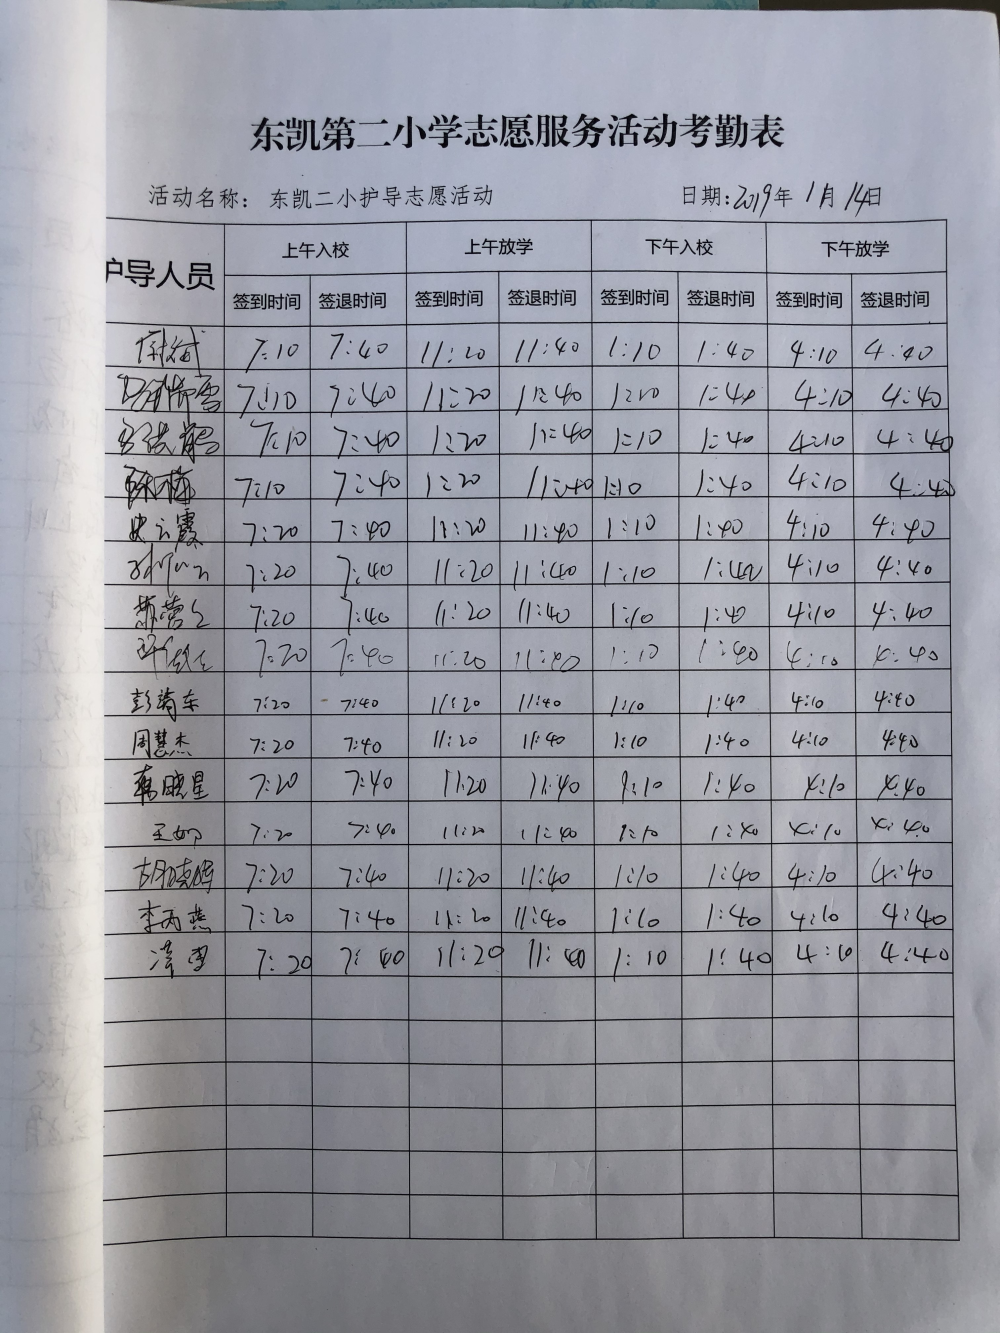 东凯第二小学志愿服务活动考勤表
活动名称：东凯二小护导志愿活动 日期:2019年1月14日
护导人员 上午入校 上午放学 下午入校 下午放学
签到时间 签退时间 签到时间 签退时间 签到时间 签退时间 签到时间 签退时间
7:10 7:40 11:20 11:40 1:10 1:40 4:10 4:40
7:10 7:40 11:20 11:40 1:10 1:40 4:10 4:40
7:10 7:40 1:20 11:40 1:10 1:40 4:10 4:40
7:10 7:40 1:20 11:40 1:10 1:40 4:10 4:40
史云霞 7:20 7:40 11:20 11:40 1:10 1:40 4:10 4:40
7:20 7:40 11:20 11:40 1:10 1:40 4:10 4:40
7:20 7:40 11:20 11:40 1:10 1:40 4:10 4:40
7:20 7:40 11:20 11:40 1:10 1:40 4:10 4:40
彭琦东 7:20 7:40 11:20 11:40 1:10 1:40 4:10 4:40
周慧杰 7:20 7:40 11:20 11:40 1:10 1:40 4:10 4:40
韩晓星 7:20 7:40 11:20 11:40 1:10 1:40 4:10 4:40
王如 7:20 7:40 11:20 11:40 1:10 1:40 4:10 4:40
7:20 7:40 11:20 11:40 1:10 1:40 4:10 4:40
李丙燕 7:20 7:40 11:20 11:40 1:10 1:40 4:10 4:40
7:20 7:40 11:20 11:40 1:10 1:40 4:10 4:40